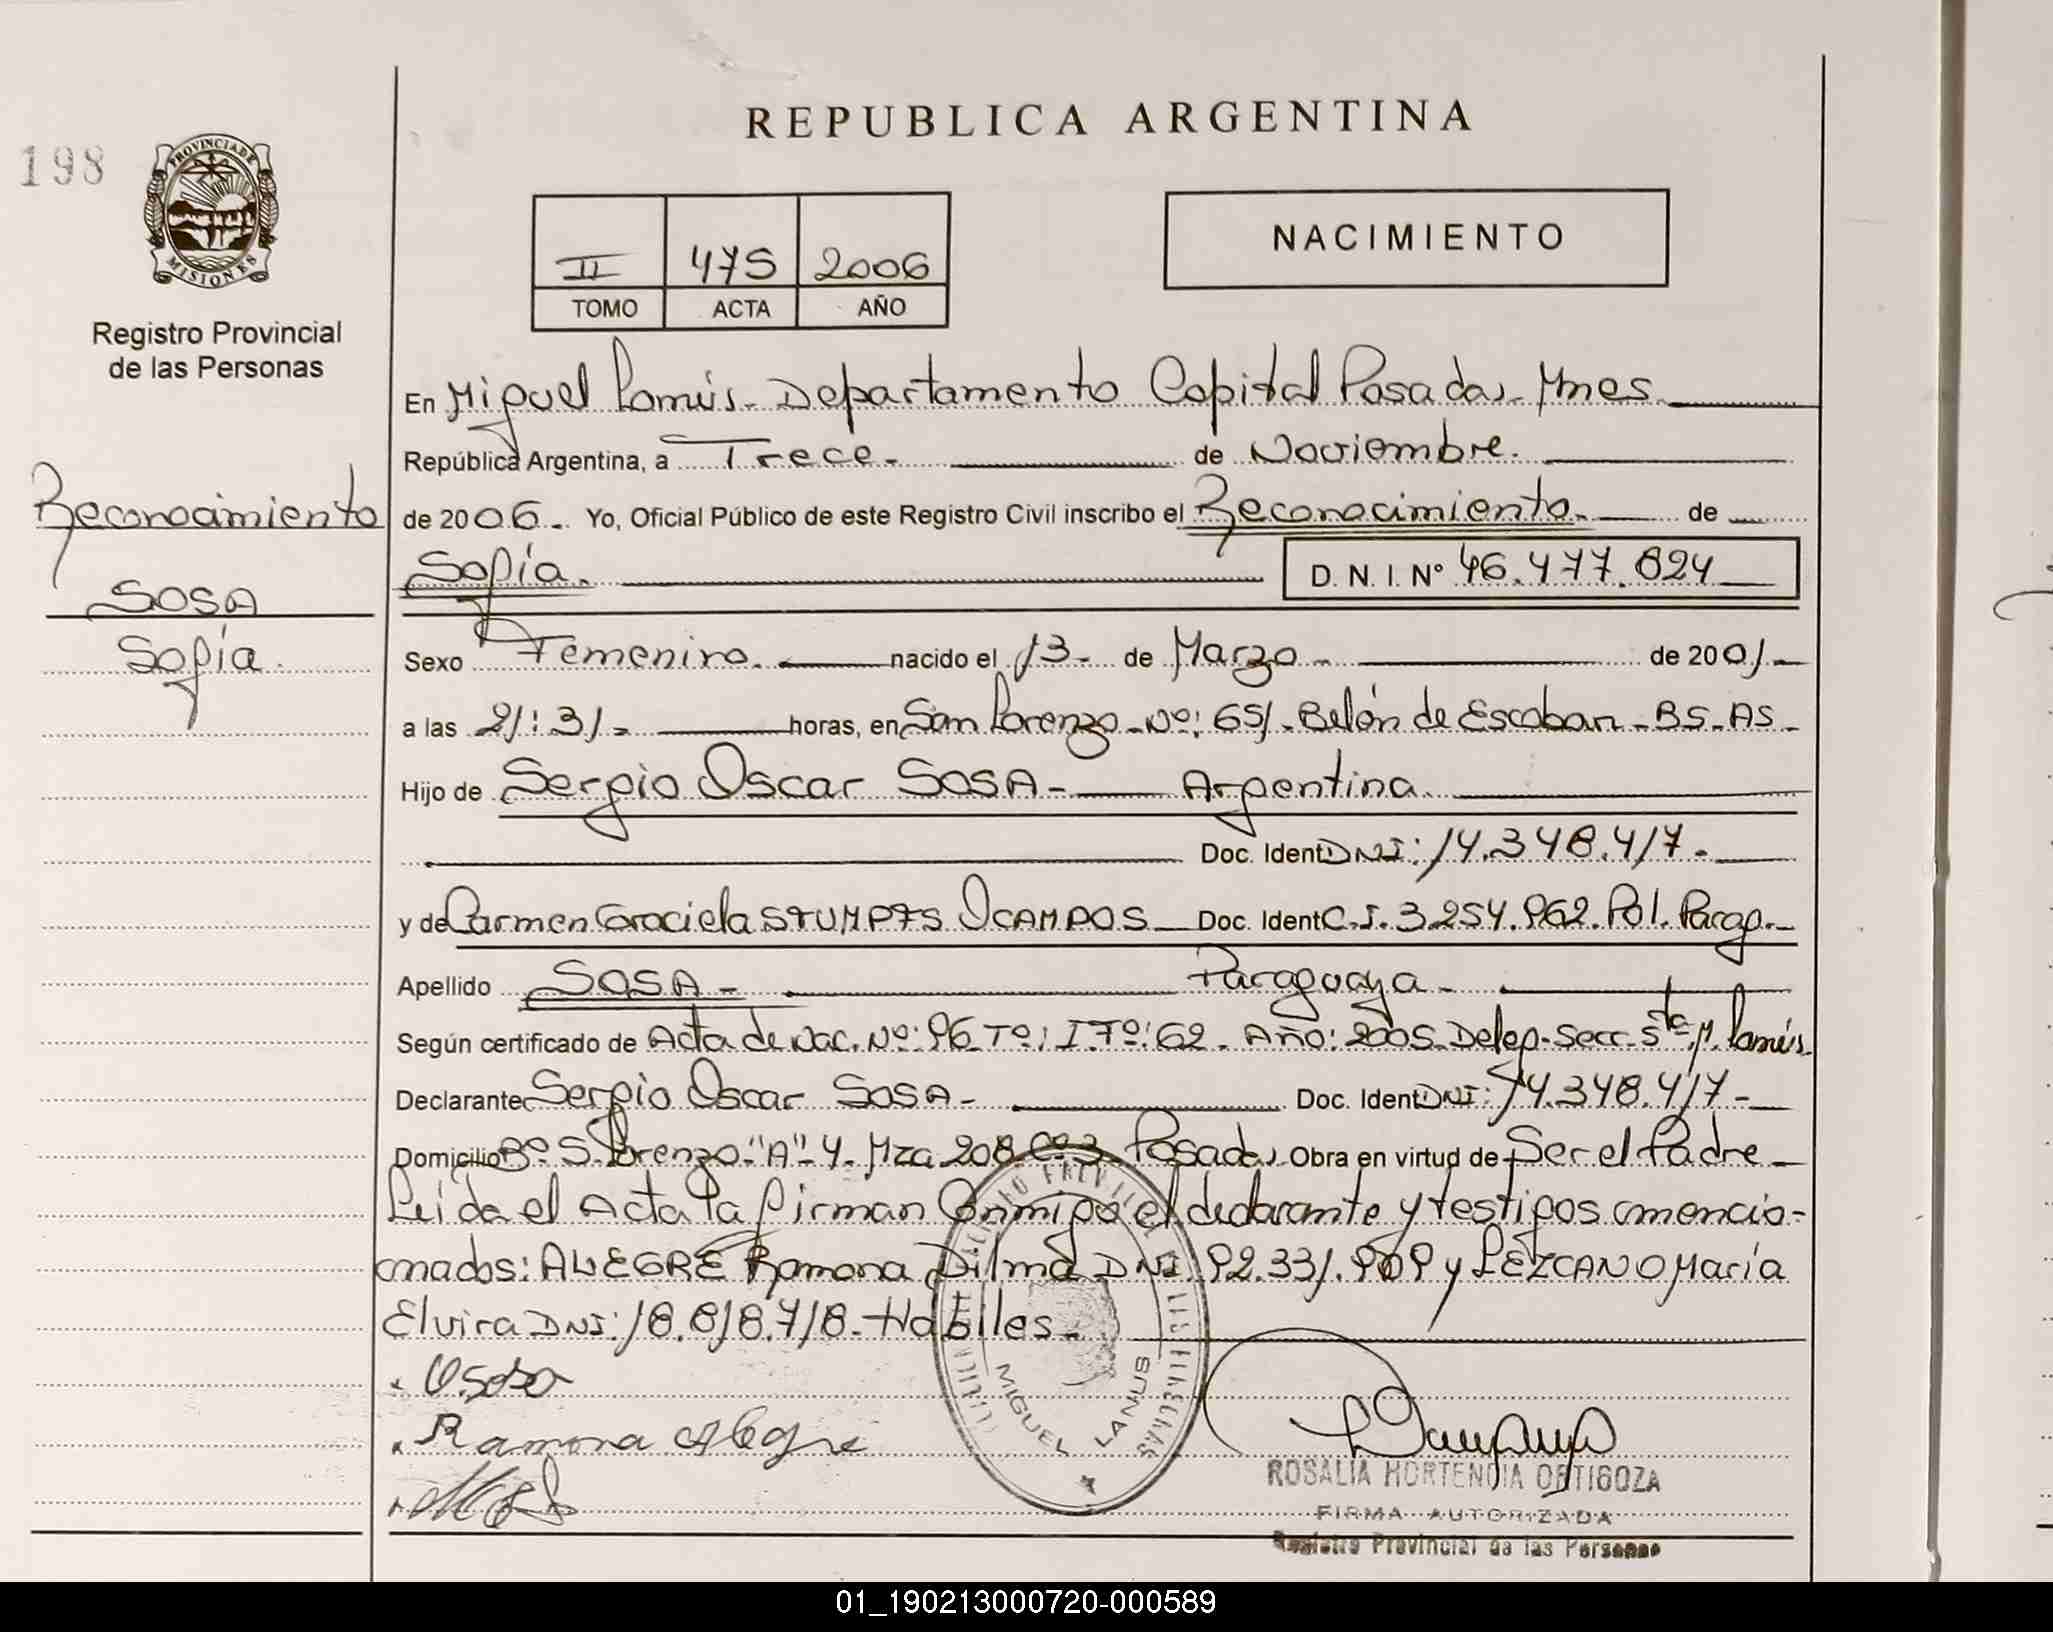 REPUBLICA ARGENTINA
198
PROVINCIA DE
MISIONES
Registro Provincial
de las Personas
II 475 2006
TOMO ACTA AÑO
NACIMIENTO
En Miguel Lanús - Departamento Capital Posadas - Mnes
República Argentina, a Trece - de Noviembre.
Reconocimiento
de 2006 - Yo, Oficial Público de este Registro Civil inscribo el Reconocimiento - de
Sofía. D. N. I. N° 46.477.824
SOSA
Sofía.
Sexo Femenino. nacido el 13 - de Marzo - de 2001 -
a las 21:31 - horas, en San Lorenzo - Nº: 651 - Belén de Escobar - BS - AS -
Hijo de Sergio Oscar SOSA - Argentina
Doc. Ident DNI: 14.348.417 -
y de Carmen Graciela STUMPFS OCAMPOS Doc. Ident C.I. 3.254.962. Pol. Parag. -
Apellido SOSA - Paraguaya -
Según certificado de Acta de Nac. Nº: 96 Tº: I Fº: 62 - Año: 2005 - Deleg. Secc. 5ta M. Lanús.
Declarante Sergio Oscar SOSA - Doc. Ident DNI: 14.348.417 -
Domicilio Bº S. Lorenzo "A" 4 - Mza 208 Cº 3 Posadas Obra en virtud de Ser el Padre -
Leída el Acta la firman Conmigo el declarante y testigos mencio-
nados: ALEGRE Ramona Dilma DNI 92.331.909 y LEZCANO María
Elvira DNI: 18.818.718 - Habiles -
O sosa
Ramona Alegre
MIGUEL LANUS
ROSALIA HORTENCIA ORTIGOZA
FIRMA AUTORIZADA
Registro Provincial de las Personas
01_190213000720-000589